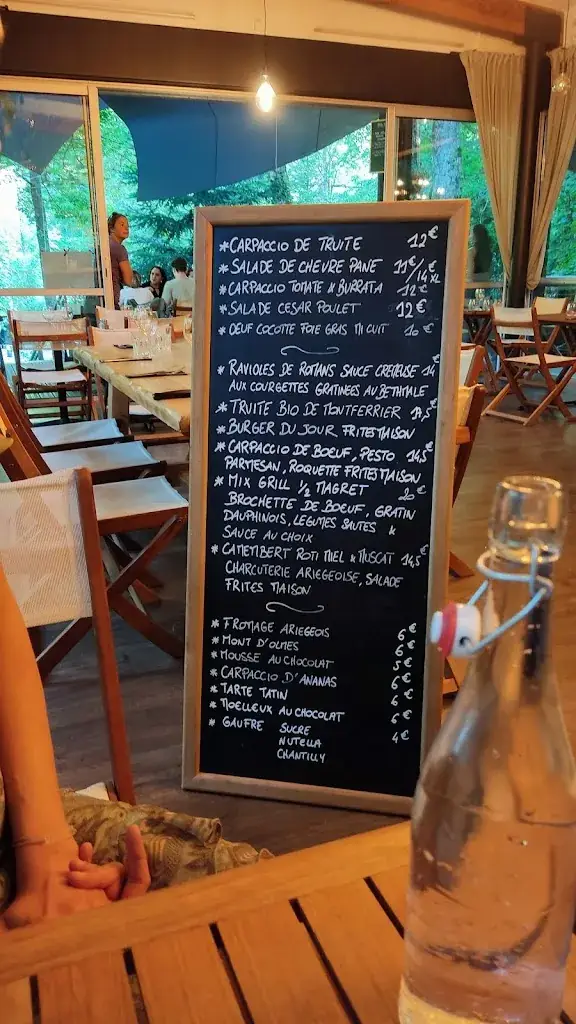 *CARPACCIO DE TRUITE 12€
*SALADE DE CHEVRE PANE 11€/14€ XL
*CARPACCIO TOMATE & BURRATA 12€
*SALADE CESAR POULET 12€
*OEUF COCOTTE FOIE GRAS MI CUIT 10€
*RAVIOLES DE ROMANS SAUCE CREMEUSE 14€
AUX COURGETTES GRATINEES AU BETHMALE
*TRUITE BIO DE MONTFERRIER 17,5€
*BURGER DU JOUR FRITES MAISON
*CARPACCIO DE BOEUF, PESTO 14,5€
PARMESAN, ROQUETTE FRITES MAISON
*MIX GRILL 1/2 MAGRET 20€
BROCHETTE DE BOEUF, GRATIN
DAUPHINOIS, LEGUMES SAUTES &
SAUCE AU CHOIX
*CAMEMBERT ROTI MIEL & MUSCAT 14,5€
CHARCUTERIE ARIEGEOISE, SALADE
FRITES MAISON
*FROMAGE ARIEGEOIS 6€
*MONT D'OLMES 6€
*MOUSSE AU CHOCOLAT 5€
*CARPACCIO D'ANANAS 6€
*TARTE TATIN 6€
*MOELLEUX AU CHOCOLAT 6€
*GAUFRE SUCRE 4€
NUTELLA
CHANTILLY